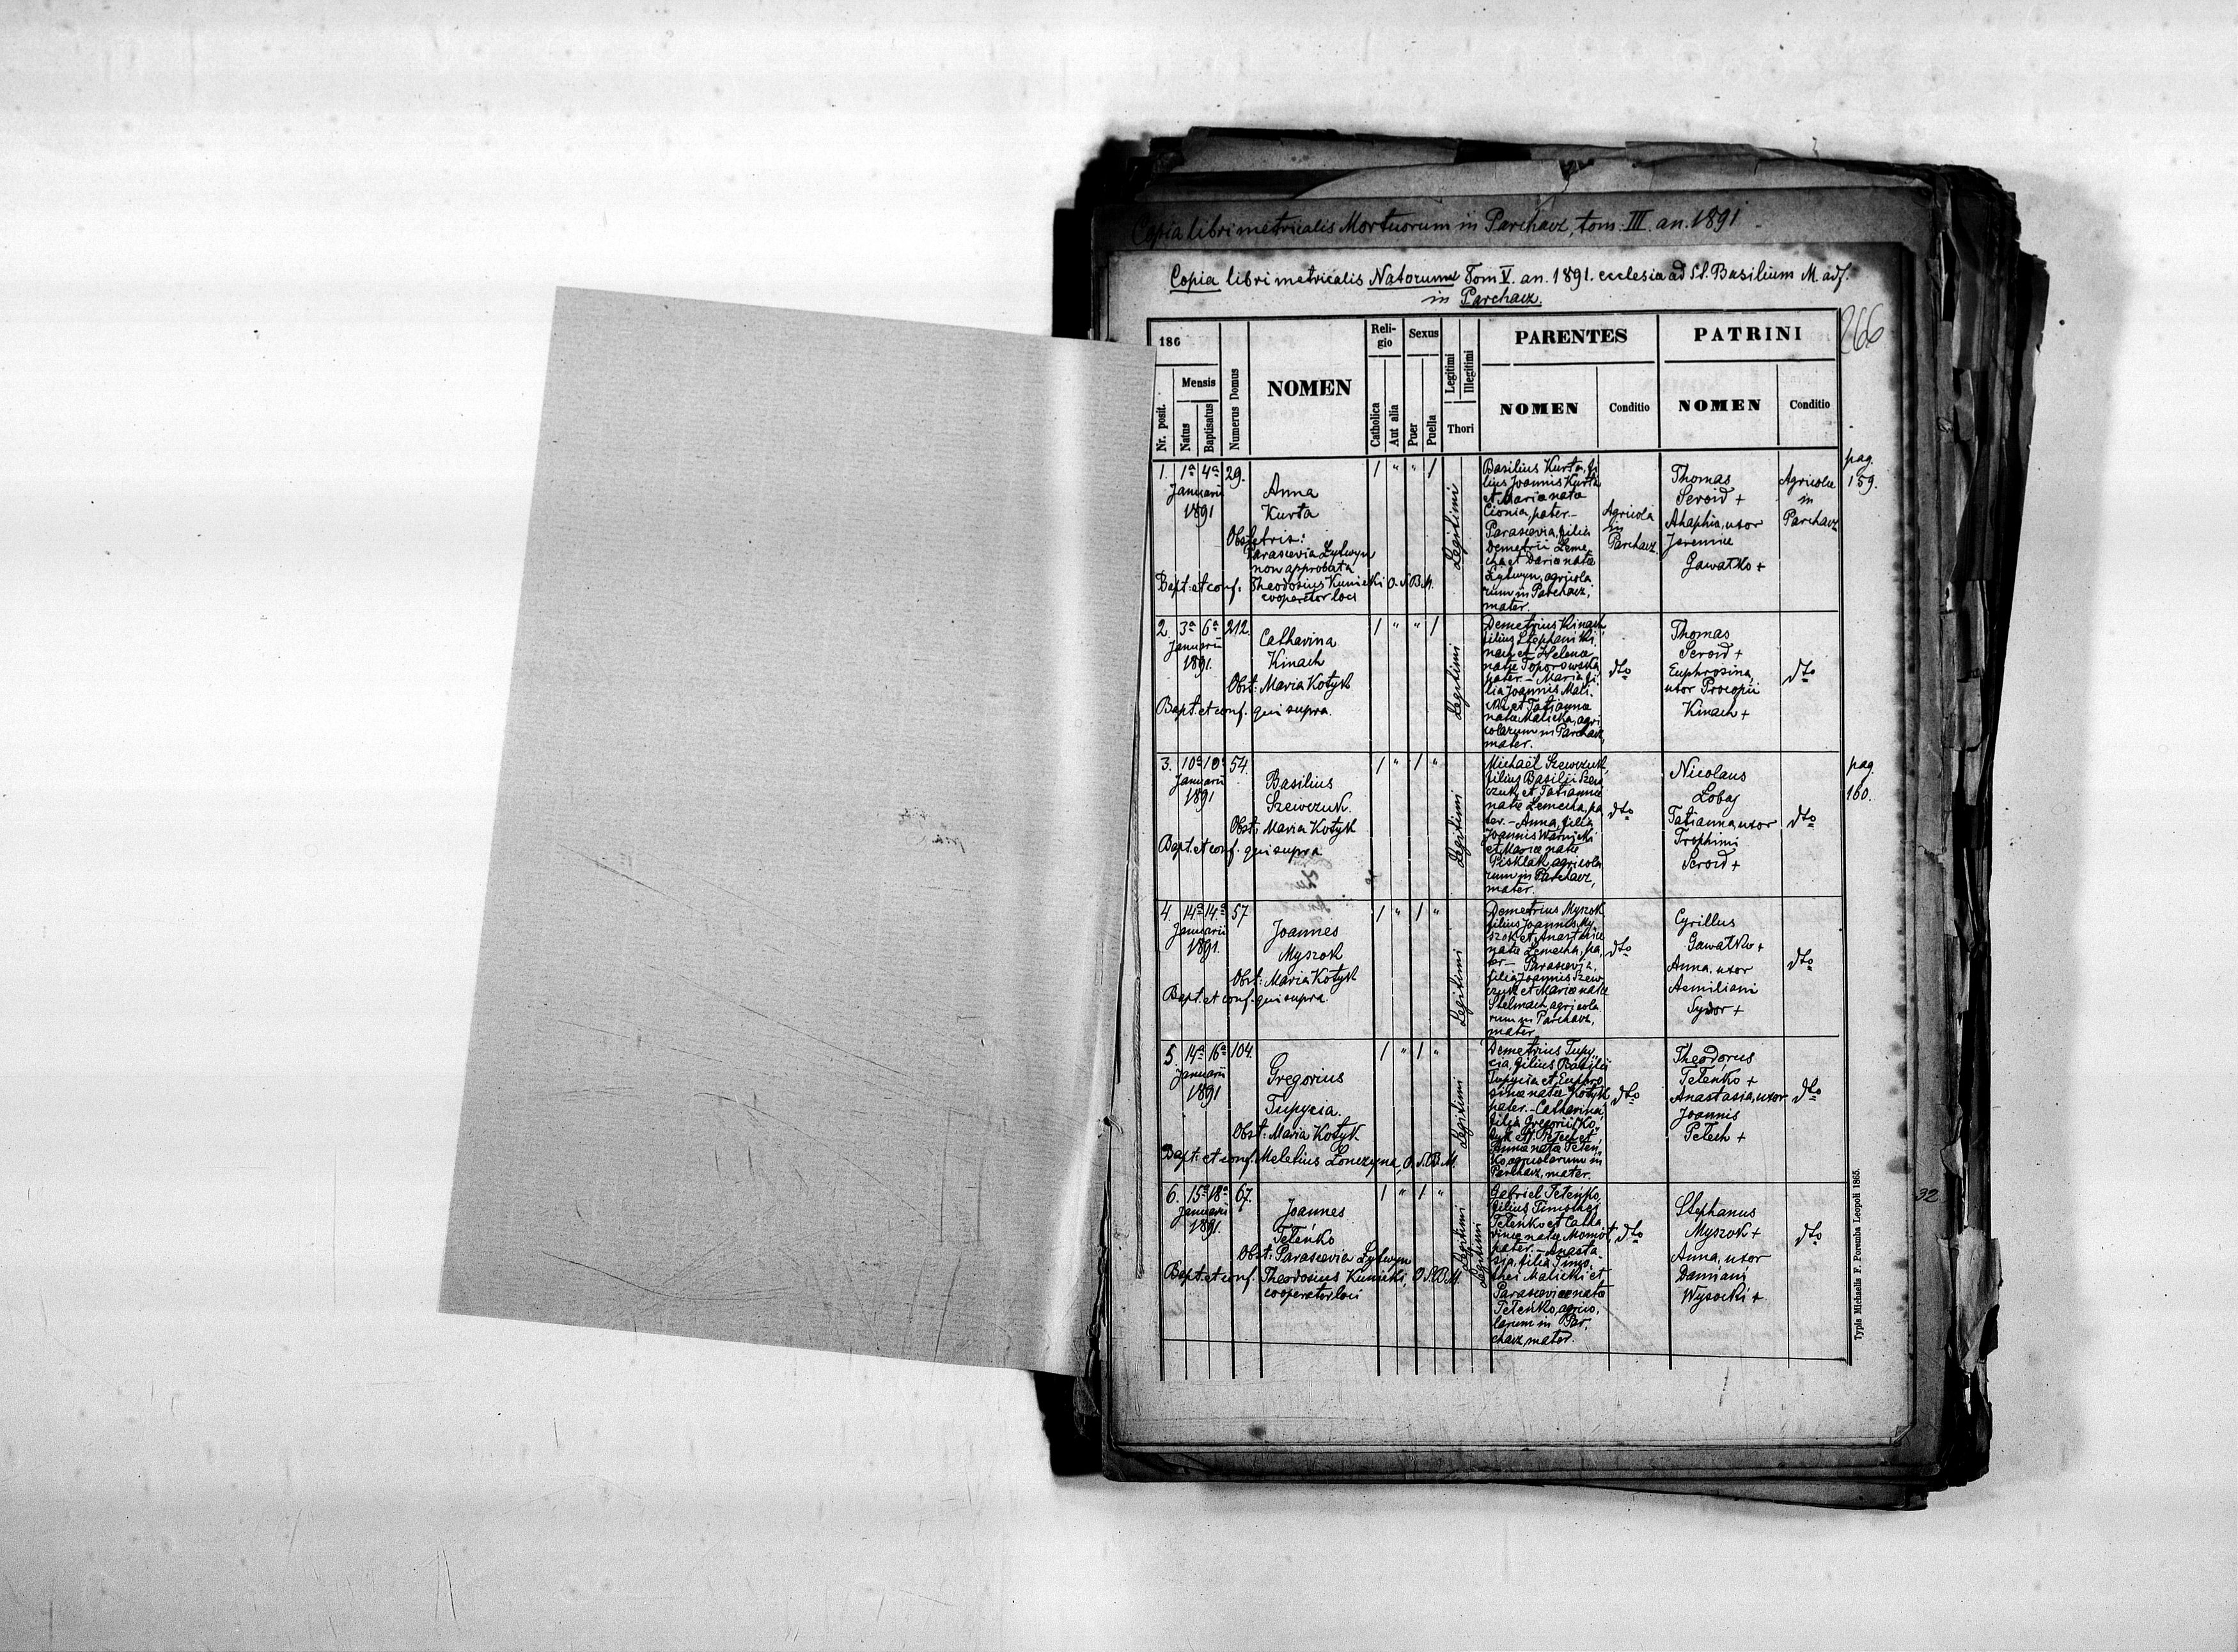 Copia libri metricalis Mortuorum in Parchacz, tom. III. an. 1891
Copia libri metricalis Natorum Tom V. an. 1891. ecclesia ad St. Basilium M. adf.
in Parchacz.
266
186
Nr. posit.
Mensis
Natus
Baptisatus
Numerus Domus
NOMEN
Reli-
gio
Catholica
Aut alia
Sexus
Puer
Puella
Legitimi
Illegitimi
Thori
PARENTES
NOMEN
Conditio
PATRINI
NOMEN
Conditio
1. 1a 4a 29.
Januarii
1891
Anna
Kurta
Obstetrix:
Parascevia Lytwyn
non approbata
Bapt. et conf. Theodosius Kunicki O. S. B. M.
cooperator loci
/ " " /
Legitimi
Basilius Kurta, fi
lius Joannis Kurta
et Maria nata
Cionia, pater.-
Parascevia, filia
Demetrii Leme-
cha et Daria nata
Lytwyn, agricola
rum in Parchacz,
mater.
Agricola
in
Parchacz.
Thomas
Seroid +
Ahaphia, uxor
Jeremiae
Gawatko +
Agricolae
in
Parchacz
pag.
159.
2. 3a 6a 212.
Januarii
1891.
Catharina
Kinach
Obst: Maria Kotyk
Bapt. et conf. qui supra.
/ " " /
Legitimi
Demetrius Kinach,
filius Stephani Ki
nach et Helenae
natae Toporowska
pater.- Maria fi
lia Joannis Mali-
cki et Tatianna
nata Malicka, agri
colarum in Parchacz,
mater.
dto
Thomas
Seroid +
Euphrosina,
uxor Procopii
Kinach +
dto
3. 10a 10a 54.
Januarii
1891
Basilius
Szewczuk.
Obst: Maria Kotyk
Bapt. et conf. qui supra
/ " / "
Legitimi
Michaël Szewczuk,
filius Basilii Szew
czuk et Tatianna
nata Lemecha, pa
ter.- Anna, filia
Joannis Warnicki
et Maria nata
Pisklak, agricola
rum in Parchacz,
mater.
dto
Nicolaus
Lobaj
Tatianna, uxor
Trophimi
Seroid +
dto
pag.
160.
4. 14a 14a 57
Januarii
1891.
Joannes
Myszok
Obst: Maria Kotyk
Bapt. et conf. qui supra
/ " / "
Legitimi
Demetrius Myszok
filius Joannis My-
szok et Anastasiae
nata Lemecha, pa
ter- Parascevia,
filia Joannis Szew
czuk et Maria nata
Stelmach agricola
rum in Parchacz,
mater
dto
Cyrillus
Gawatko +
Anna, uxor
Aemiliani
Sydor +
dto
5. 14a 16a 104.
Januarii
1891
Gregorius
Tupycia.
Obst: Maria Kotyk
Bapt: et conf. Meletius Lonczyna, O. S. B. M.
/ " / "
Legitimi
Demetrius Tupy
cia, filius Basilii
Tupycia et Euphro
sina nata Kotyk
pater.- Catharina
filia Gregorii
Anna nata Teten-
ko, agricolarum in
Parchacz, mater.
dto
Theodorus
Tetenko +
Anastasia, uxor
Joannis
Petech +
dto
6. 15a 18a 67.
Januarii
1891.
Joannes
Teteńko
Obst: Parascevia Lytwyn
Bapt. et conf. Theodosius Kunicki, O. S. B. M.
cooperator loci
/ " / "
Legitimi
Legitimi
Gabriel Teteńko,
filius Timothei
Teteńko et Catha
rina nata Momot,
pater.- Anasta
sia, filia Timo,
thei Malicki et
Parasceviae nata
Teteńko, agrico,
larum in Par,
chacz mater.
dto
Stephanus
Myszok +
Anna, uxor
Damiani
Wysocki +
dto
Typis Michaelis F. Poremba Leopoli 1865.
32